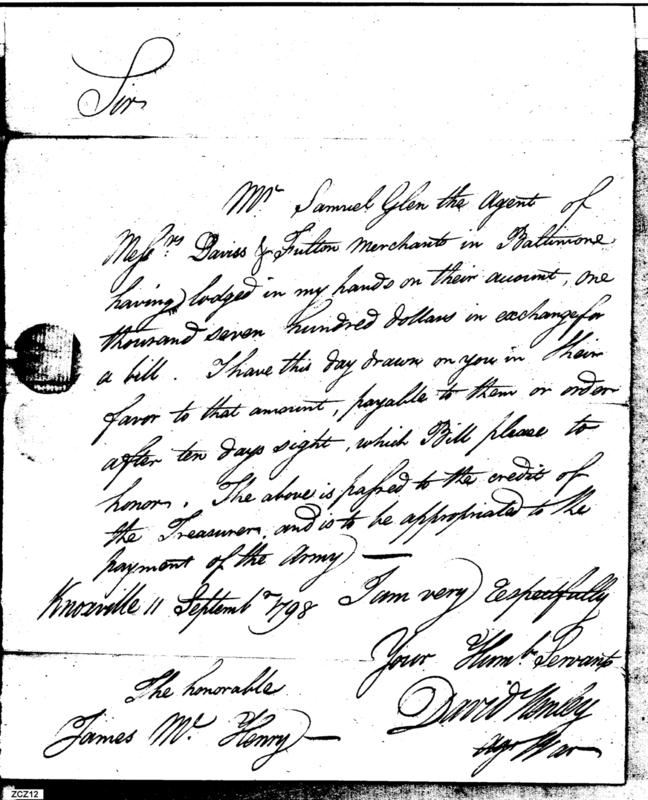 Sir
Mr Samuel Glen the Agent of
Messrs Daviss & Fulton Merchants in Baltimore
having lodged in my hands on their account, one
thousand seven hundred dollars in exchange for
a bill. I have this day drawn on you in their
favor to that amount, payable to them or order
after ten days sight, which Bill please to
honor. The above is passed to the credit of
the Treasurer, and is to be appropriated to the
payment of the Army —
Knoxville 11 Septembr 1798 I am very Respectfully
Your Humbe Servant
The honorable
David Henley
James Mc Henry —
Agt War
ZCZ12